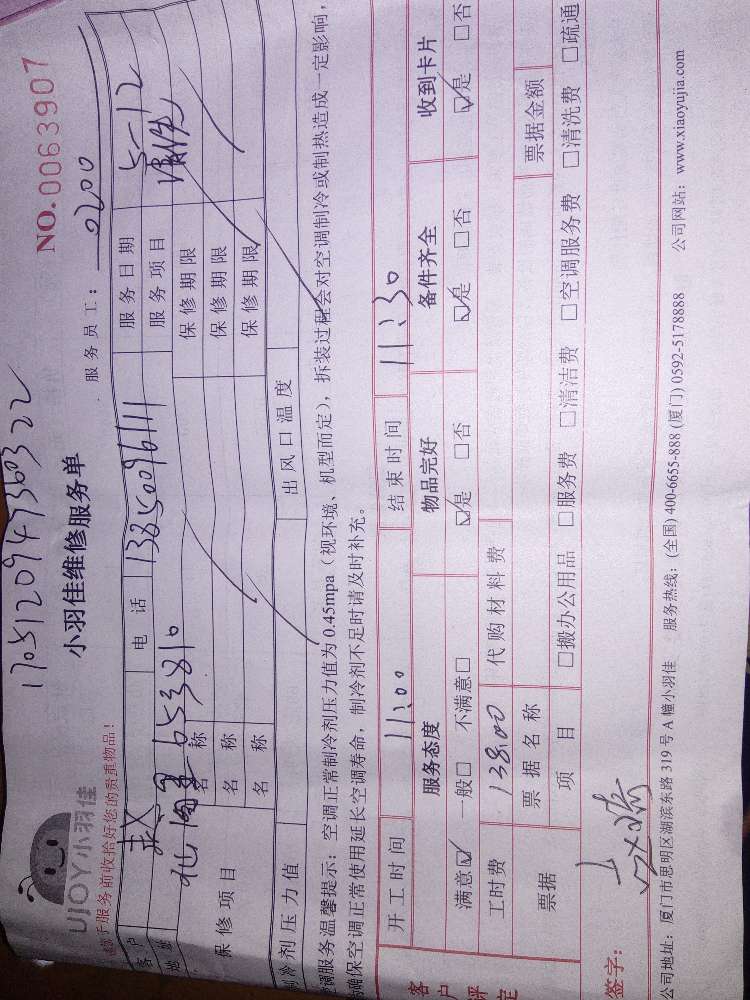 1705120947360322
UJOY小羽佳
小羽佳维修服务单
NO. 0063907
服务前收拾好您的贵重物品!
服务员工: 0200
客户 赵 电话 13850096111 服务日期 5-12
地址 653810 服务项目
保修项目 名称 保修期限
名称 保修期限
名称 保修期限
制冷剂压力值 出风口温度
空调服务温馨提示: 空调正常制冷剂压力值为0.45mpa (视环境、机型而定), 拆装过程会对空调制冷或制热造成一定影响,
为确保空调正常使用延长空调寿命, 制冷剂不足时请及时补充。
开工时间 11:00 结束时间 11:30
客户评定 服务态度 物品完好 备件齐全 收到卡片
满意☑ 一般□ 不满意□ ☑是 □否 ☑是 □否 ☑是 □否
工时费 138.00 代购材料费
票据 票据名称 票据金额
项目 □搬办公用品 □服务费 □清洁费 □空调服务费 □清洗费 □疏通
签字:
公司地址: 厦门市思明区湖滨东路319号A幢小羽佳 服务热线: (全国) 400-6655-888 (厦门) 0592-5178888 公司网站: www.xiaoyujia.com